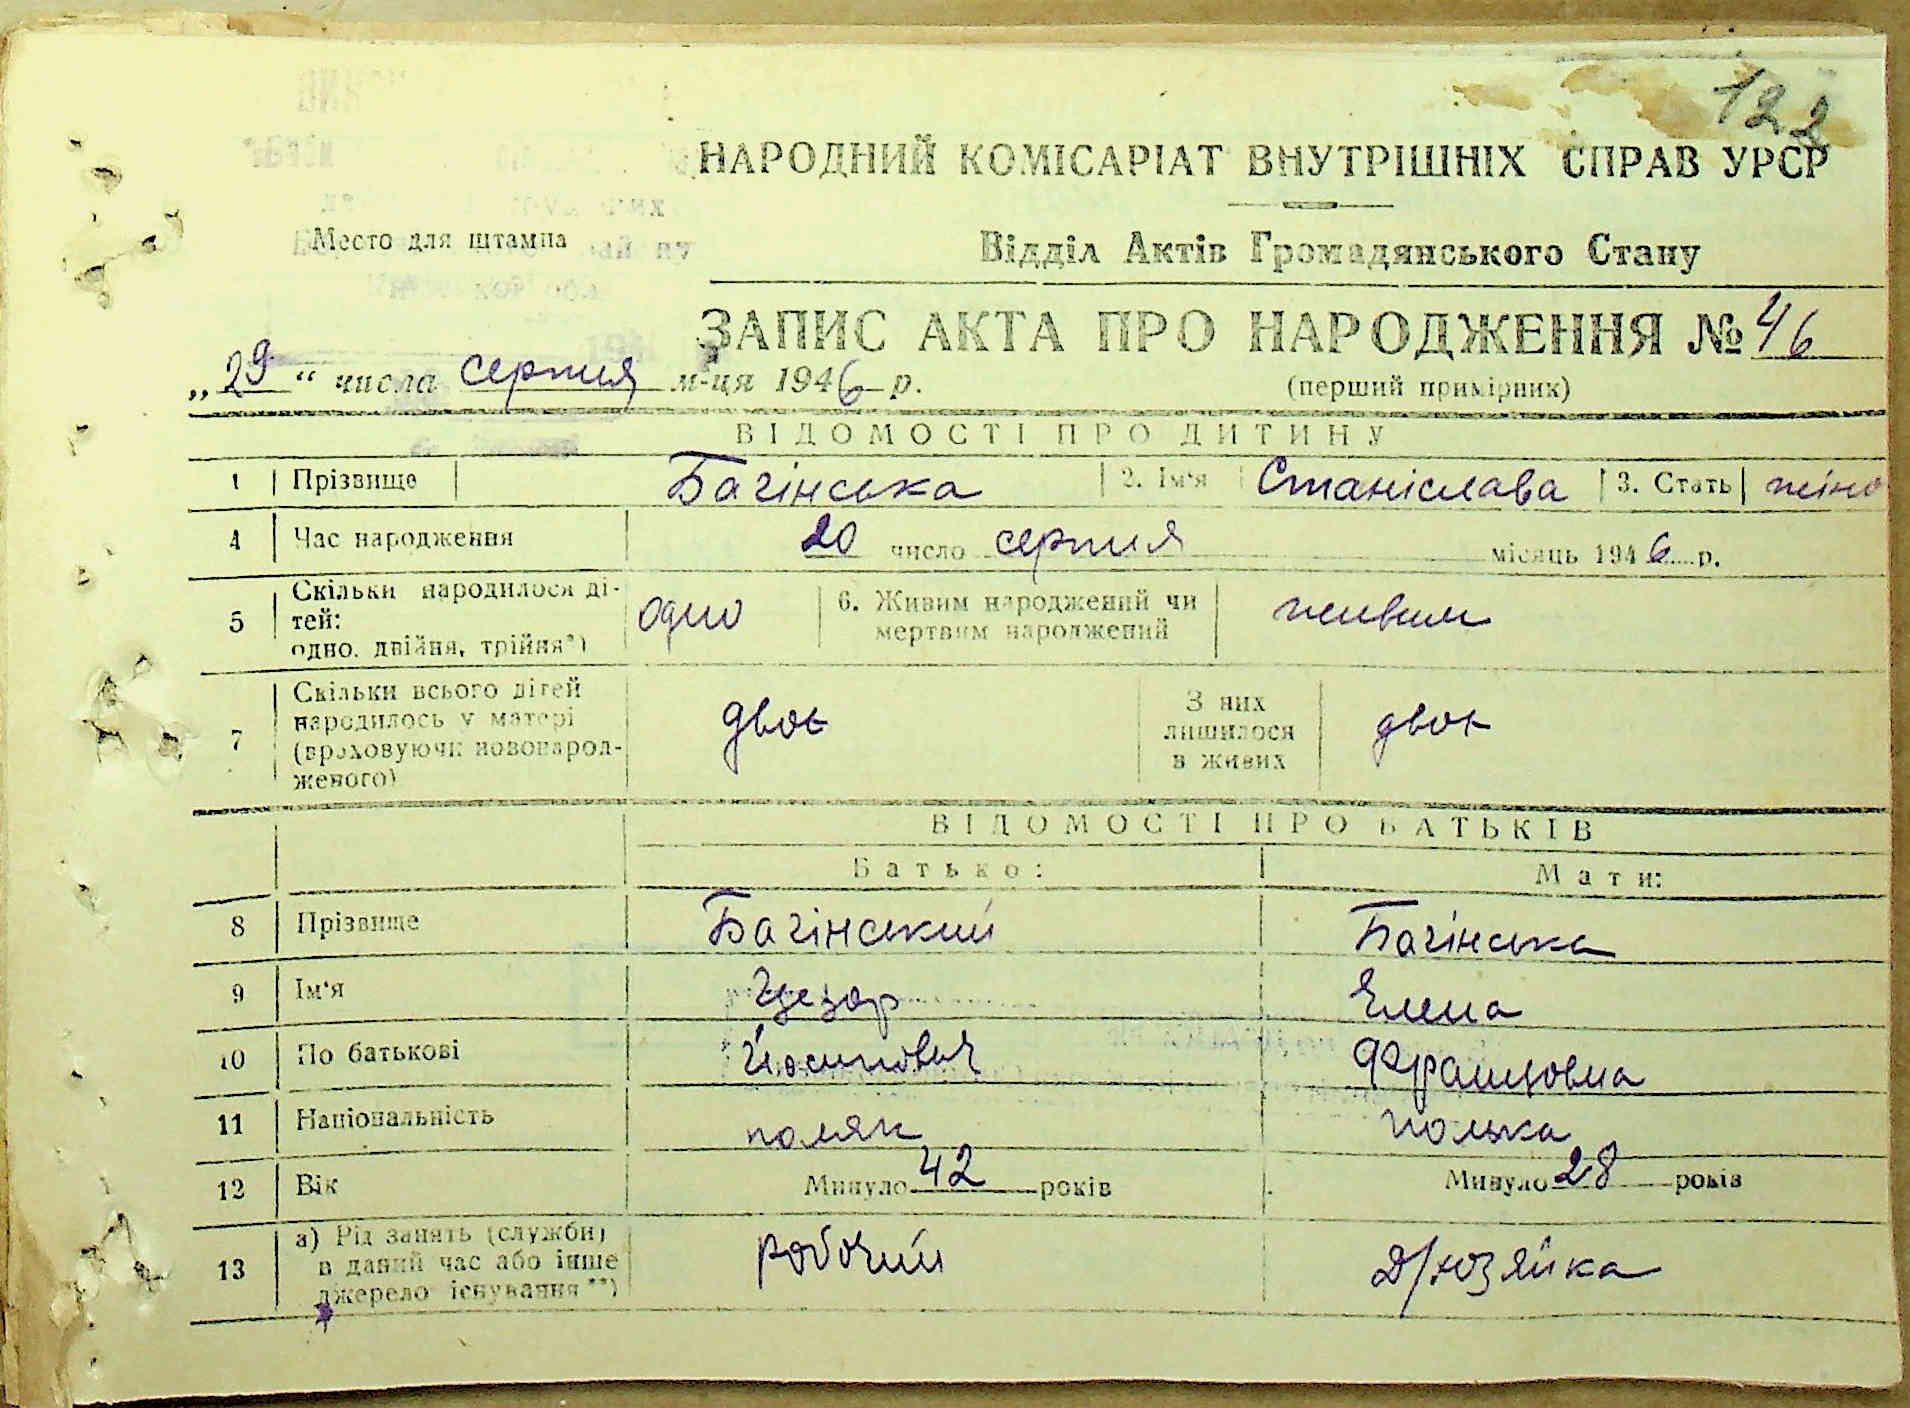 122
НАРОДНИЙ КОМІСАРІАТ ВНУТРІШНІХ СПРАВ УРСР
Место для штампа
Відділ Актів Громадянського Стану
ЗАПИС АКТА ПРО НАРОДЖЕННЯ № 46
„29“ числа серпня м-ця 1946 р.
(перший примірник)
ВІДОМОСТІ ПРО ДИТИНУ
1 Прізвище Багінська 2. Ім'я Станіслава 3. Стать жіно
4 Час народження 20 число серпня місяць 1946 р.
5 Скільки народилося ді-
тей:
одно, двійня, трійня*) одно 6. Живим народжений чи
мертвим народжений живим
7 Скільки всього дітей
народилось у матері
(враховуючи новонарод-
женого) двоє З них
лишилося
в живих двоє
ВІДОМОСТІ ПРО БАТЬКІВ
Батько: Мати:
8 Прізвище Багінський Багінська
9 Ім'я Цезар Елена
10 По батькові Йосипович Францовна
11 Національність поляк полька
12 Вік Минуло 42 років Минуло 28 років
13 а) Рід занять (служби)
в даний час або інше
джерело існування **) робочий д/хозяйка